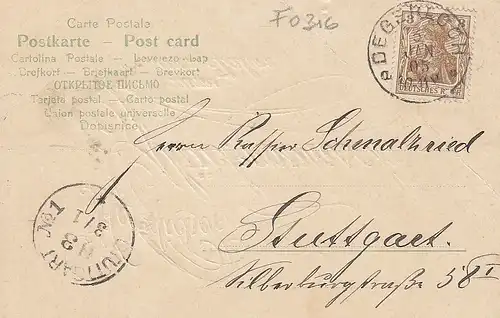 Carte Postale
F0316
Postkarte – Post card
Cartolina Postale – Levelezo-Lap
Brefkort – Briefkaart – Brevkort
ОТКРЫТОЕ ПИСЬМО
Tarjeta postal – Carto postal
Union postale universelle
Dopisnice
DEGERLOCH
JAN
05
3
3
DEUTSCHES REICH
Herrn Kassier Schmalzried
Stuttgart.
Silberburgstraße 58 I
STUTTGART No 1
3/1